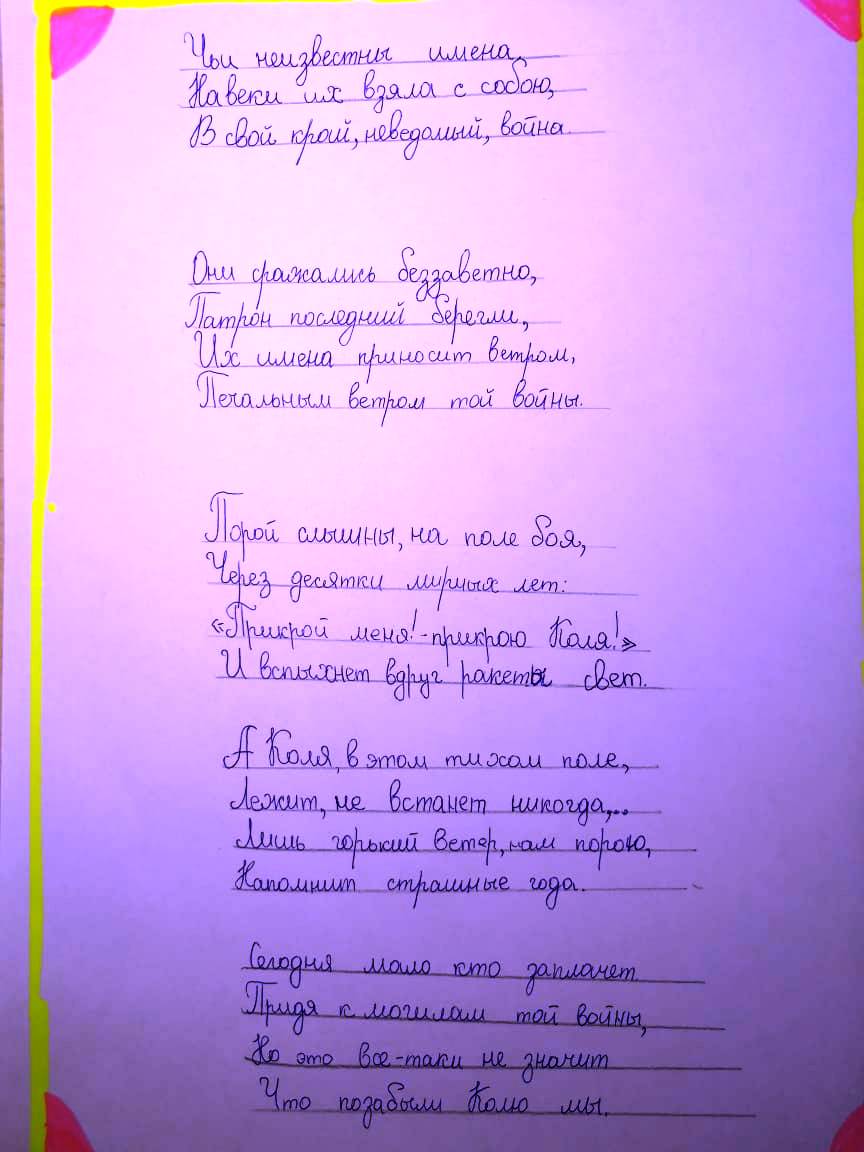 Чьи неизвестны имена,
Навеки их взяла с собою,
В свой край, неведомый, война.
Они сражались беззаветно,
Патрон последний берегли,
Их имена приносит ветром,
Печальным ветром той войны.
Порой слышны, на поле боя,
Через десятки мирных лет:
«Прикрой меня!-прикрою Коля!»
И вспыхнет вдруг ракеты свет.
А Коля, в этом тихом поле,
Лежит, не встанет никогда,..
Лишь горький ветер, нам порою,
Напомнит страшные года.
Сегодня мало кто заплачет
Придя к могилам той войны,
Но это все-таки не значит
Что позабыли Колю мы.